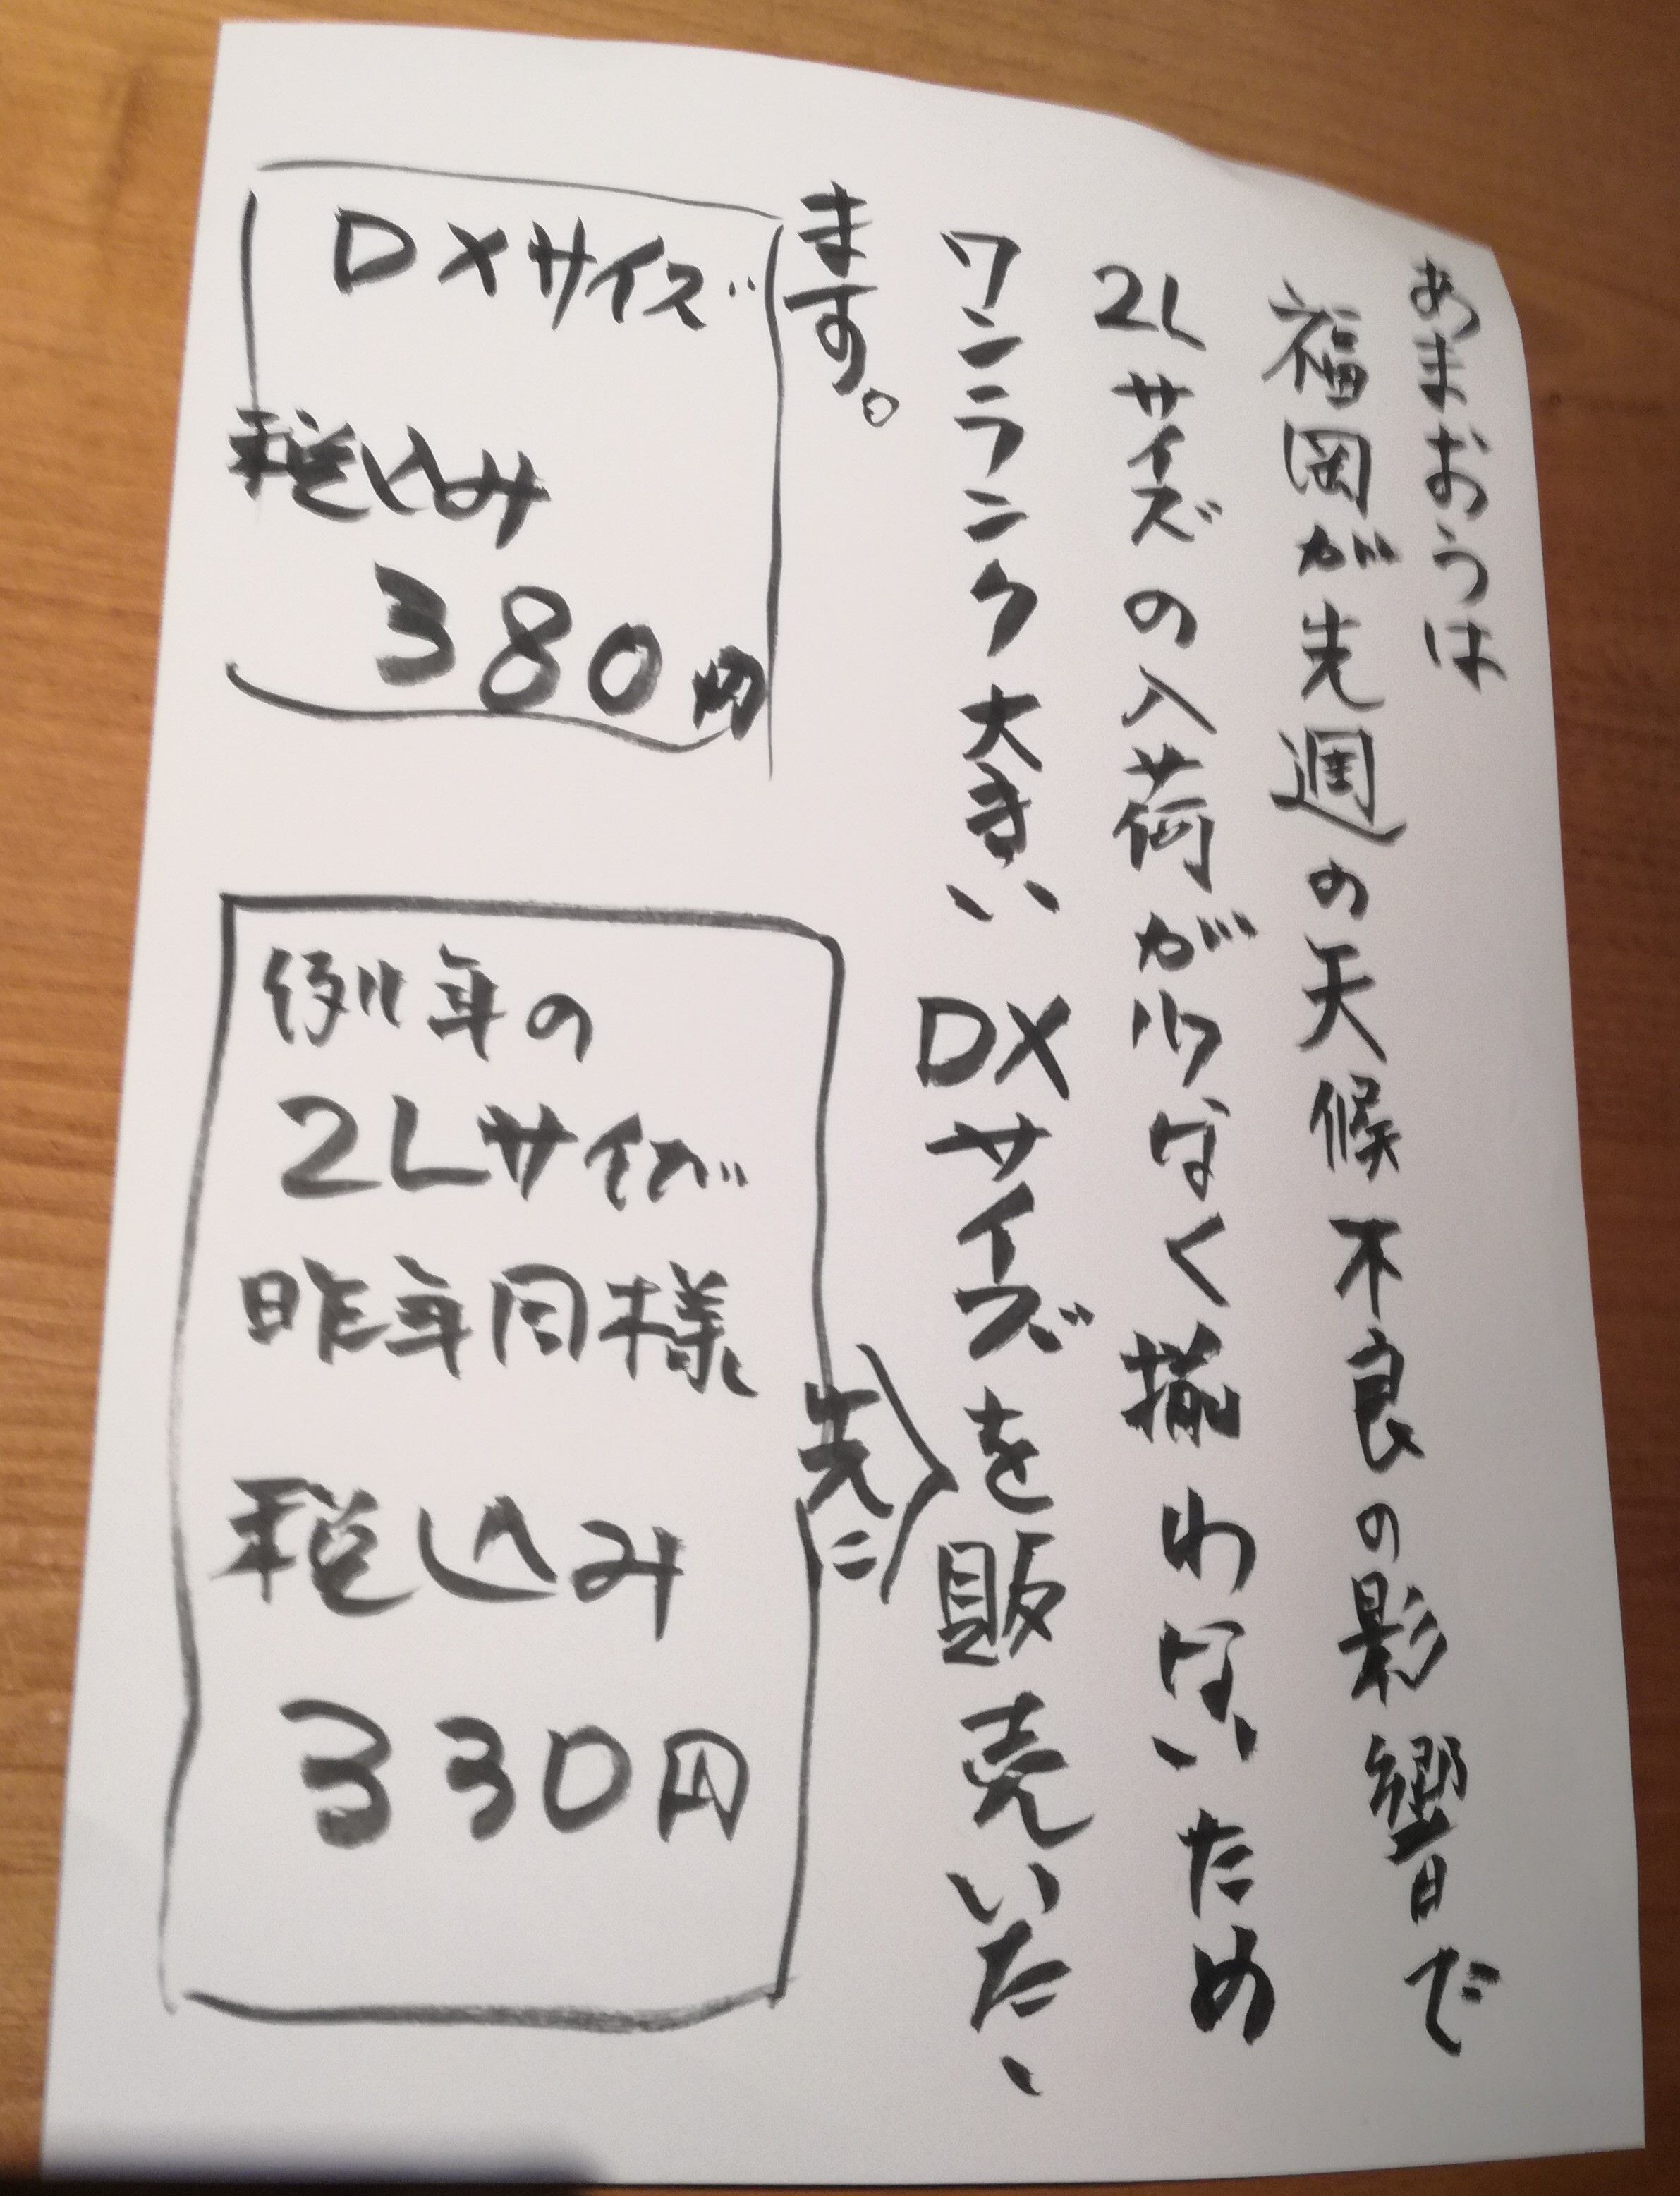 あまおうは
福岡が先週の天候不良の影響で
2Lサイズの入荷が少なく揃わないため
ワンランク大きいDXサイズを先に販売いた
ます。
DXサイズ
税込み
380円
例年の
2Lサイズが
昨年同様
税込み
330円